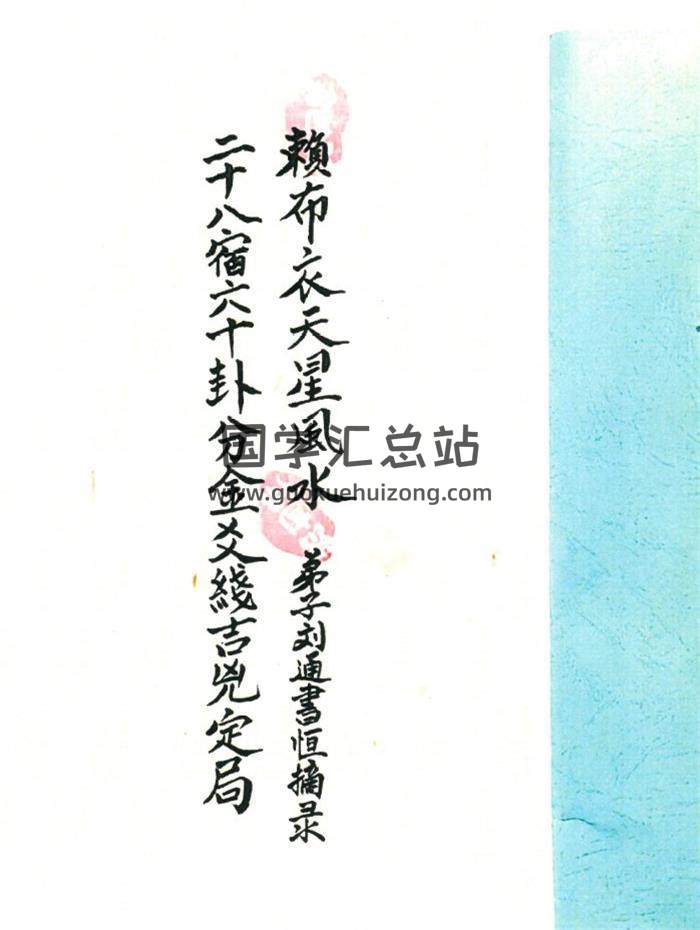 賴布衣天星風水 弟子刘通書恒摘录
二十八宿六十卦分金爻綫吉兇定局
国学汇总站
www.guoxuehuizong.com